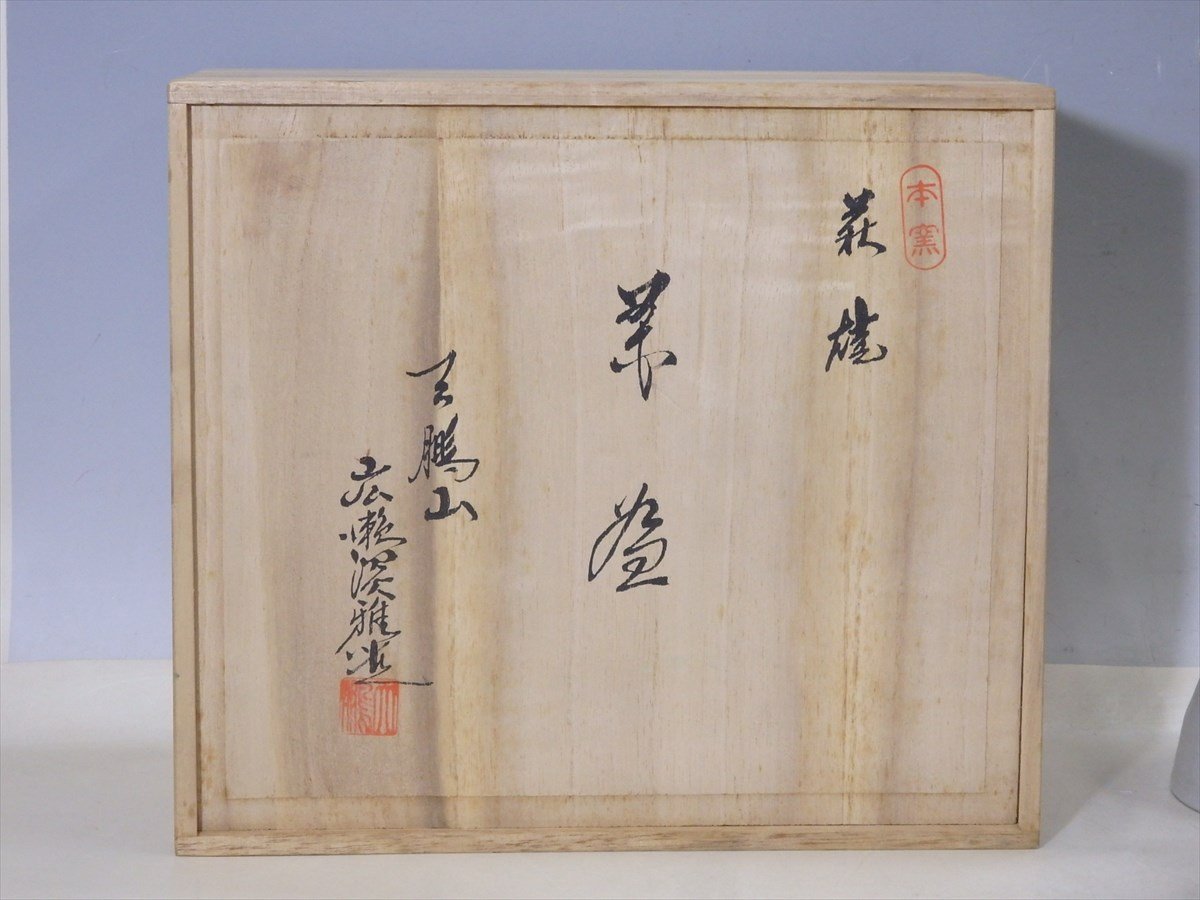 本窯
萩焼
茶盌
天鵬山
広瀬淡雅造